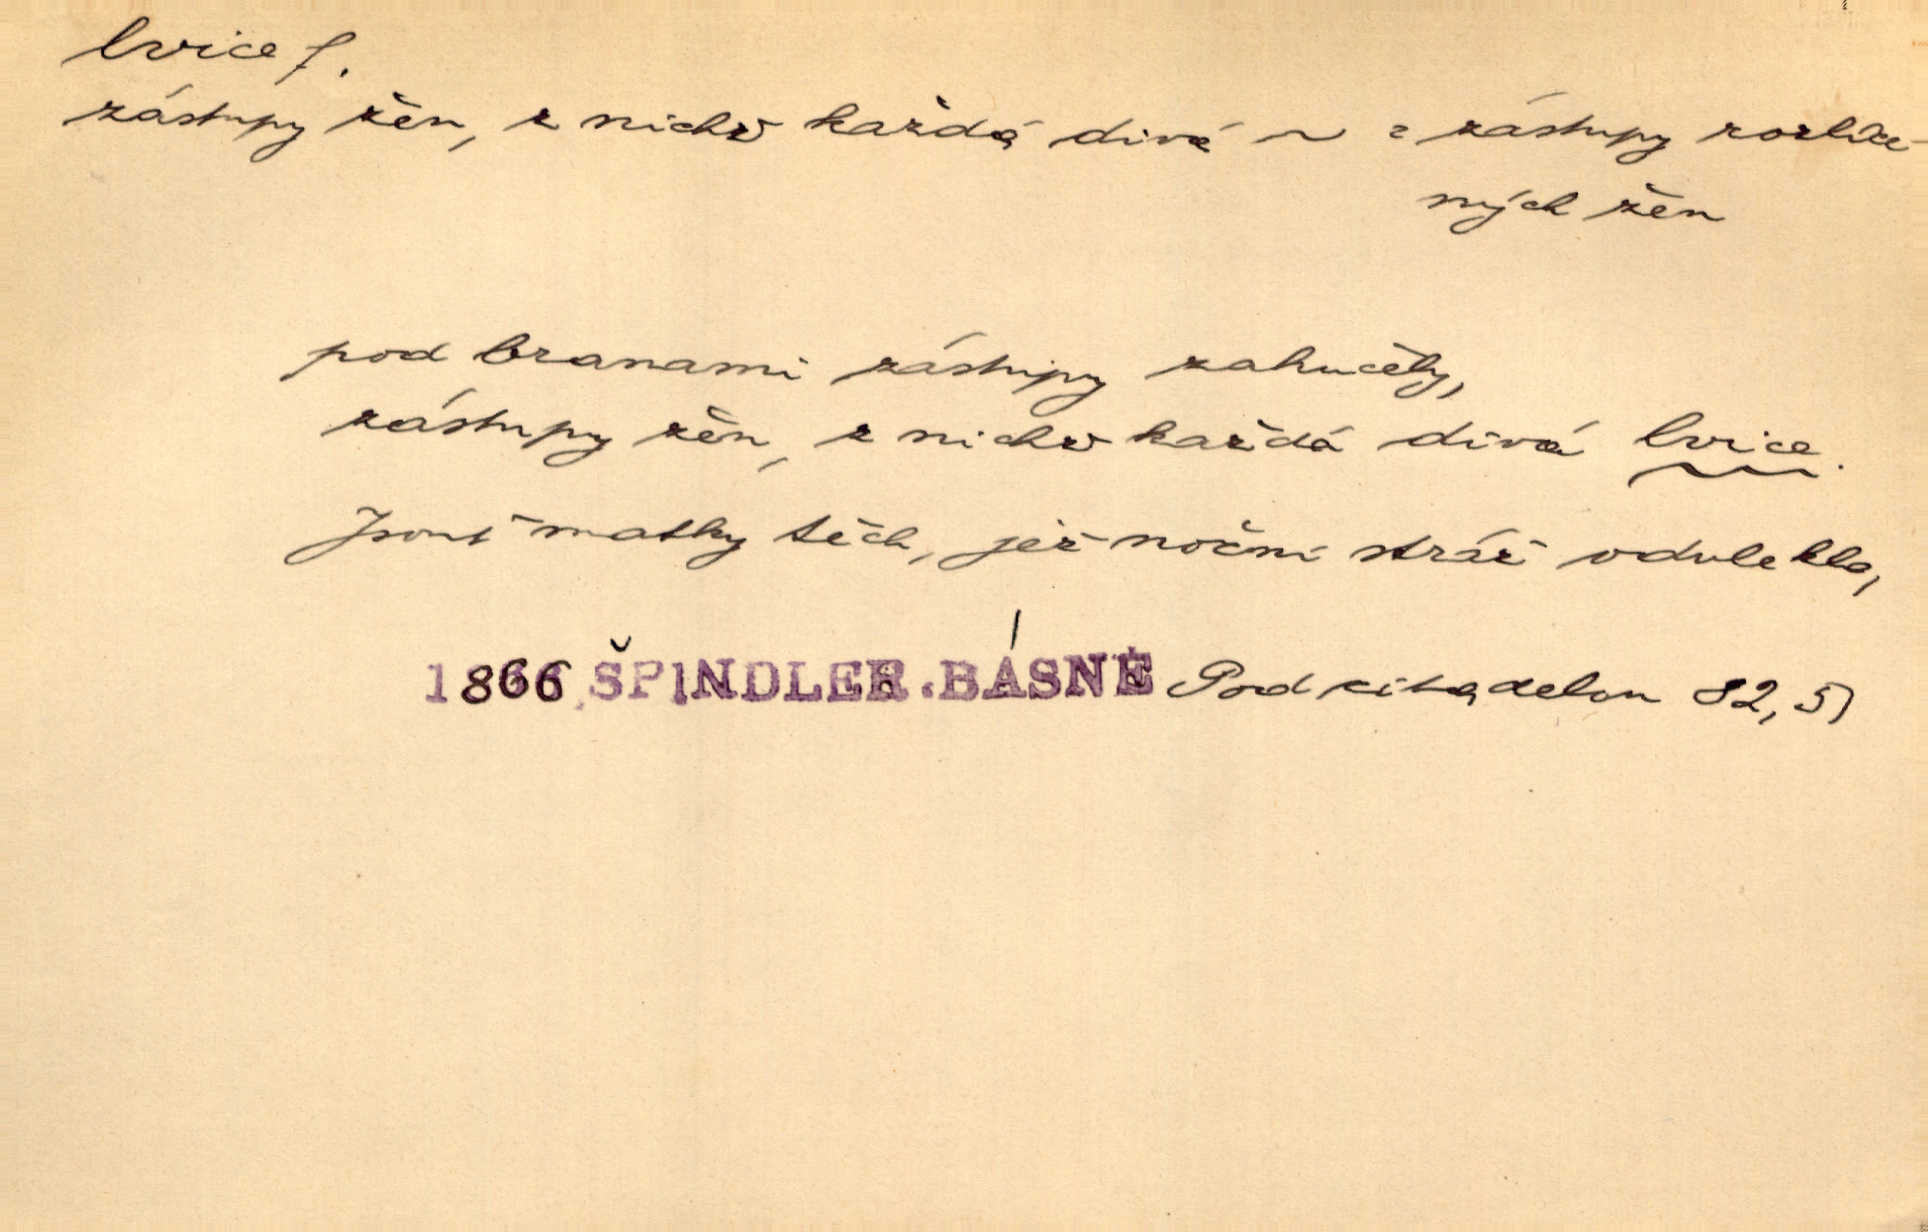 lvice f.
zástupy žen, z nichž každá divá ~ = zástupy rozlíce-
ných žen
pod branami zástupy zahučely,
zástupy žen, z nichž každá divá lvice.
Jsouť matky těch, jež noční stráž odvlekla,
1866 ŠPINDLER.BÁSNĚ Pod citadelou 82, 5)